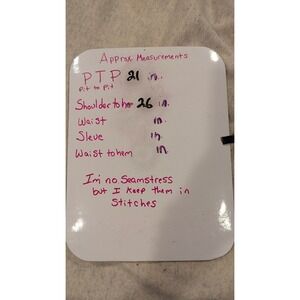 Approx Measurements
PTP 21 in.
Pit to Pit
Shoulder to hem 26 in.
Waist in.
Sleve in.
Waist to hem in
I'm no Seamstress
but I keep them in
Stitches